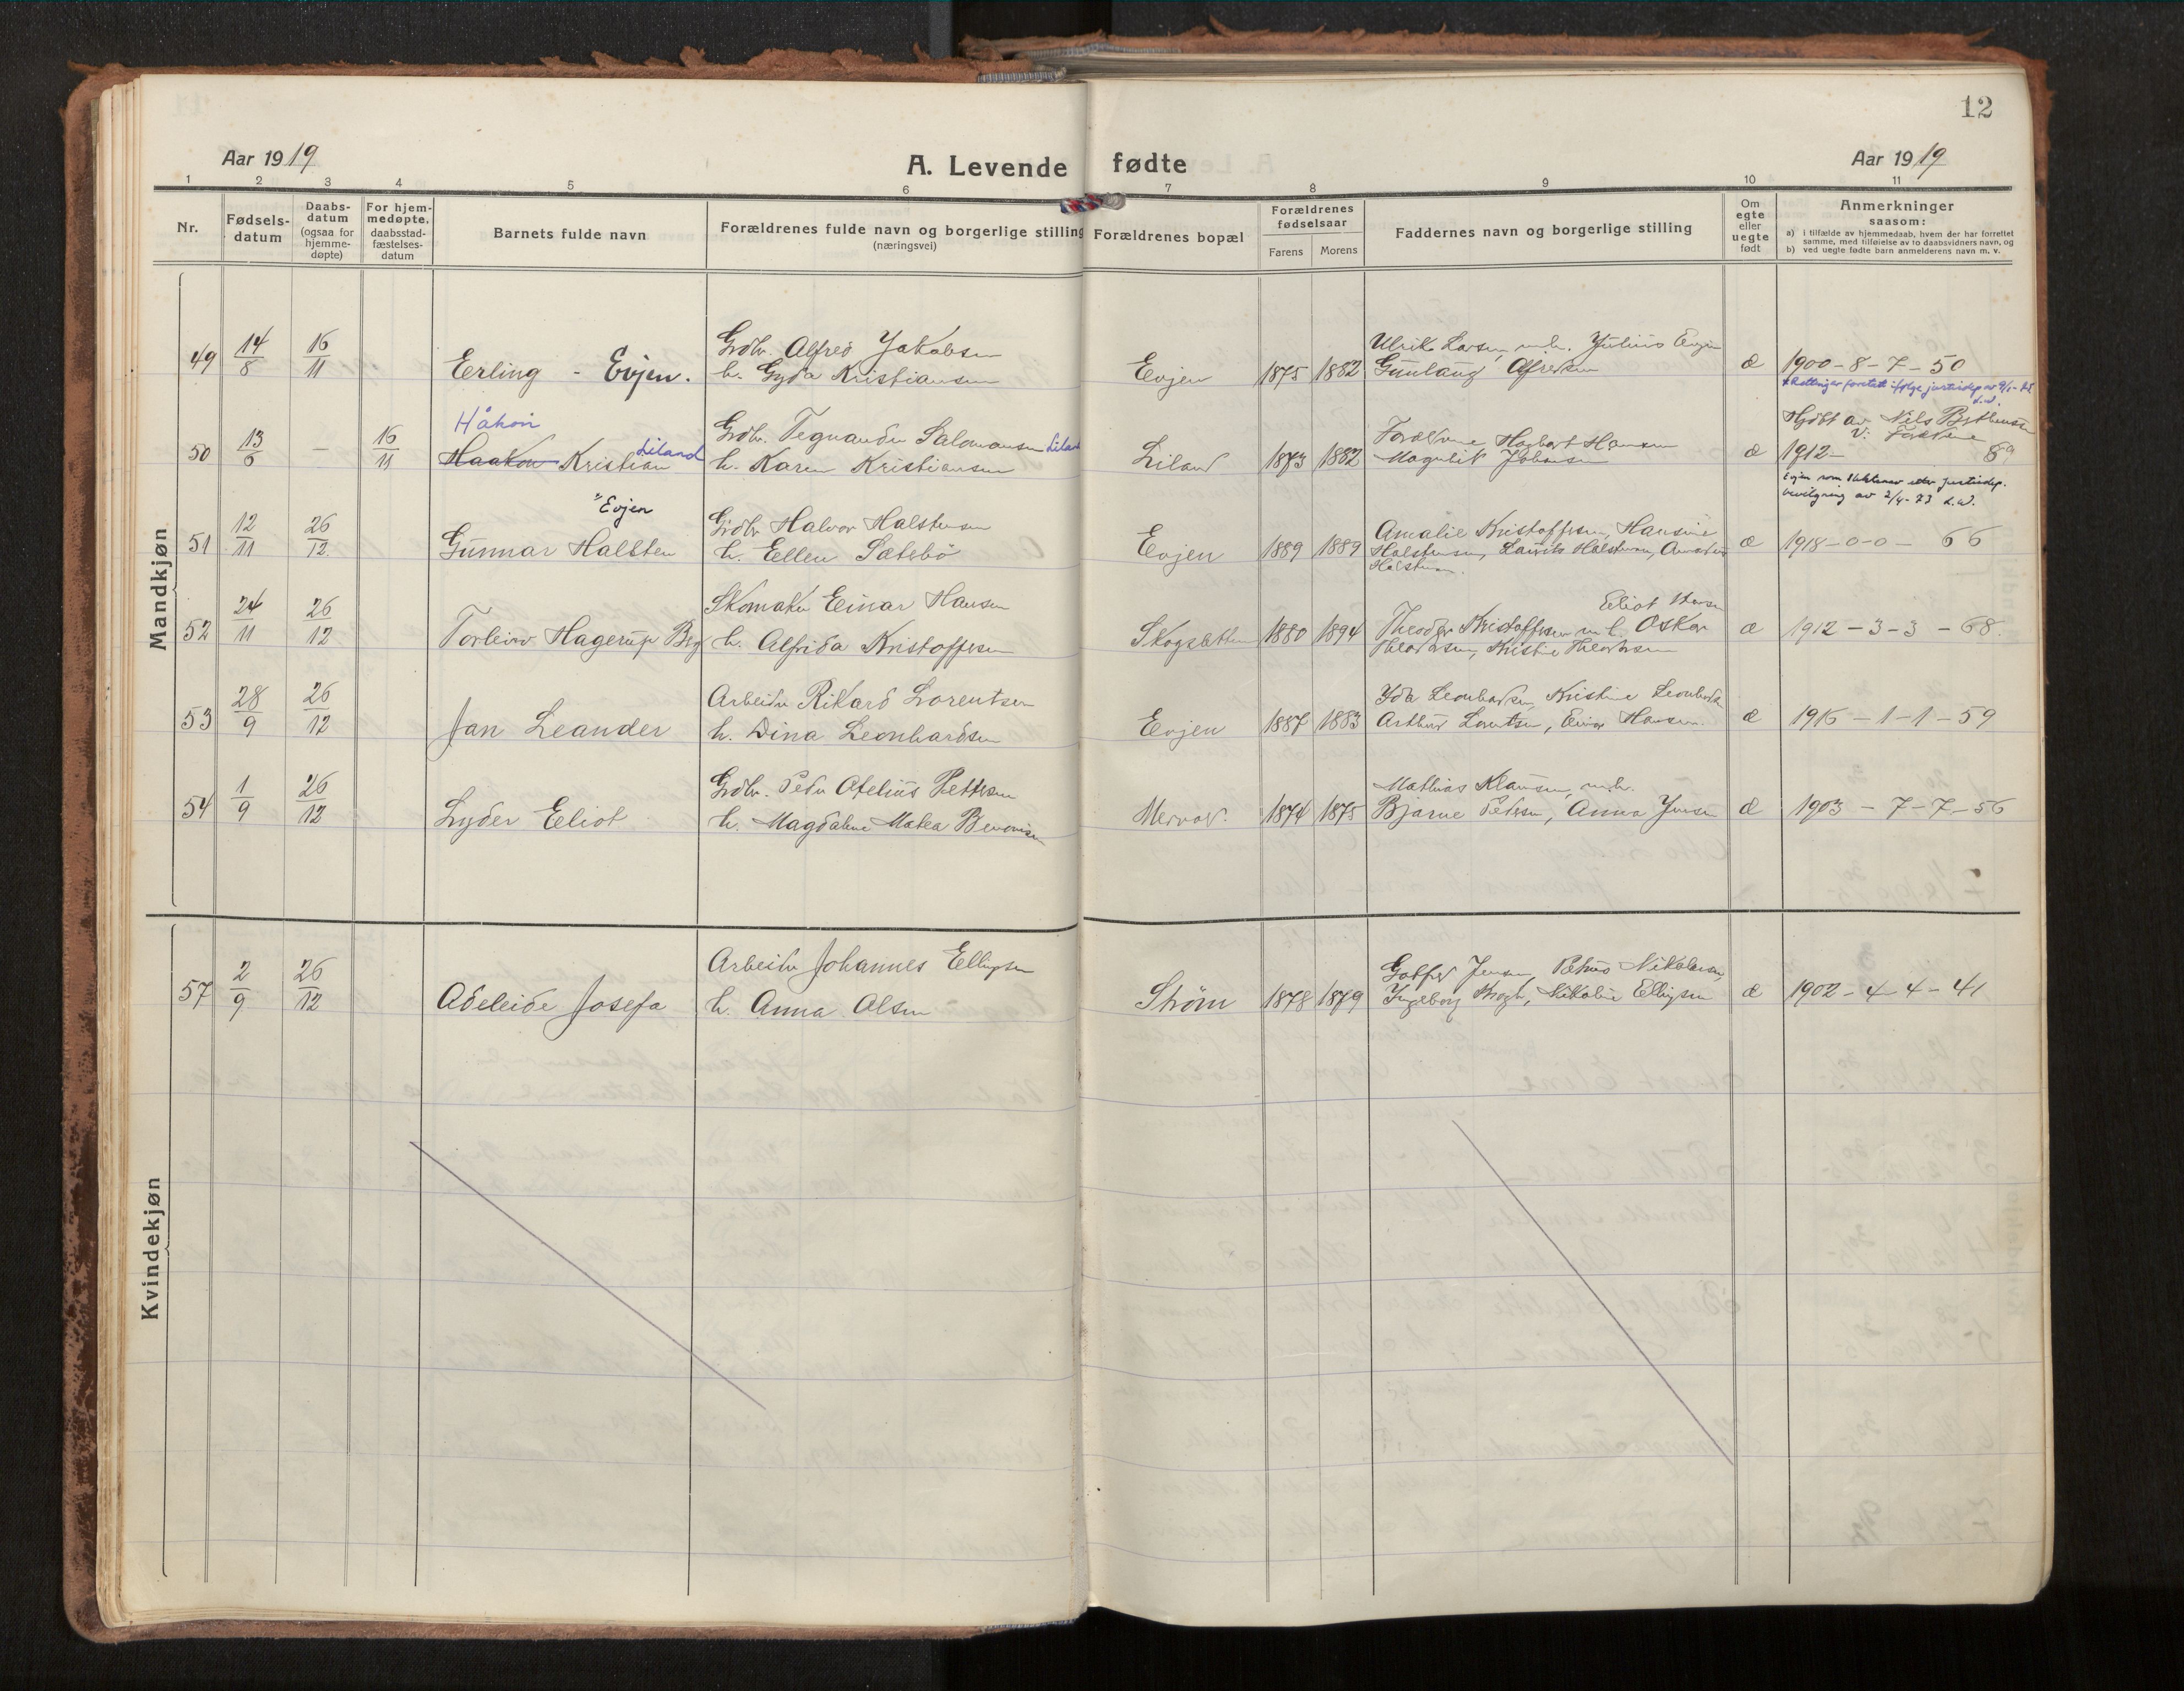 12
Aar 1919
A. Levende fødte
Aar 1919
1 2 3 4 5 6 7 8 9 10 11
Nr.
Fødsels-
datum
Daabs-
datum
(ogsaa for
hjemme-
døpte)
For hjem-
medøpte,
daabsstad-
fæstelses-
datum
Barnets fulde navn
Forældrenes fulde navn og borgerlige stilling
(næringsvei)
Forældrenes bopæl
Forældrenes
fødselsaar
Farens Morens
Faddernes navn og borgerlige stilling
Om
egte
eller
uegte
født
Anmerkninger
saasom:
a) i tilfælde av hjemmedaab, hvem der har forrettet
samme, med tilføielse av to daabsvidners navn, og
b) ved uegte fødte barn anmelderens navn m. v.
Mandkjøn
49 14/8 16/11 Erling - Evjen.
Grdbr. Alfred Jakobsen
h. Gyda Kristiansen
Evjen 1875 1882
Ulrik Larsen, m.h. Julius Evjen
Gunlaug Alfredsen
æ 1900-8-7-50
50 13/6 — 16/11
Håkon
Haakon Kristian Liland
Grdbr. Tegnander Salomonsen Liland
h. Karen Kristiansen
Liland 1873 1882
Forældrene Hagbart Hansen
Magnhild Johansen
æ
Hjdbt av Nils Berthensen
V: Forældrene
1912- 89
51 12/11 26/12
"Evjen
Gunnar Halsten
Grdbr Halvor Halstensen
h. Ellen Sætebö
Evjen 1889 1889
Amalie Kristoffersen, Hansine
Halstensen, Laurits Halstensen,
Halstensen.
æ
Evjen som slektsnavn justisdep.
bevilgning av 2/4-73
1918-0-0-66
52 24/11 26/12 Torleiv Hagerup Berg
Skomaker Einar Hansen
h. Alfrida Kristoffersen
1880 1894
Eliot
Theodor Kristoffersen m h. Oskar
Theodorsen, Kristine Theodorsen
æ 1912-3-3-68.
53 28/9 26/12 Jan Leander
Arbeider Rikard Lorentsen
h. Dina Leonhardsen
Evjen 1887 1883
Ida Leonhardsen, Kristine Leonhardsen
Arthur Lorentsen, Einar Hansen
æ 1916-1-1-59
54 1/9 26/12 Lyder Eliot
Grdbr. Peder Atelius Pettersen
h. Magdalene Matea
1874 1875
Mathias Klausen, m.h.
Bjarne Pedersen, Anna Jensen
æ 1903-7-7-56
Kvindekjøn
57 2/9 26/12 Adeleide Josefa
Arbeider Johannes Ellingsen
h. Anna Olsen
Strøm 1878 1879
Jensen, Petrus Nikolaisen,
Ingeborg Krogh, Nikoline Ellingsen
æ 1902-4-4-41